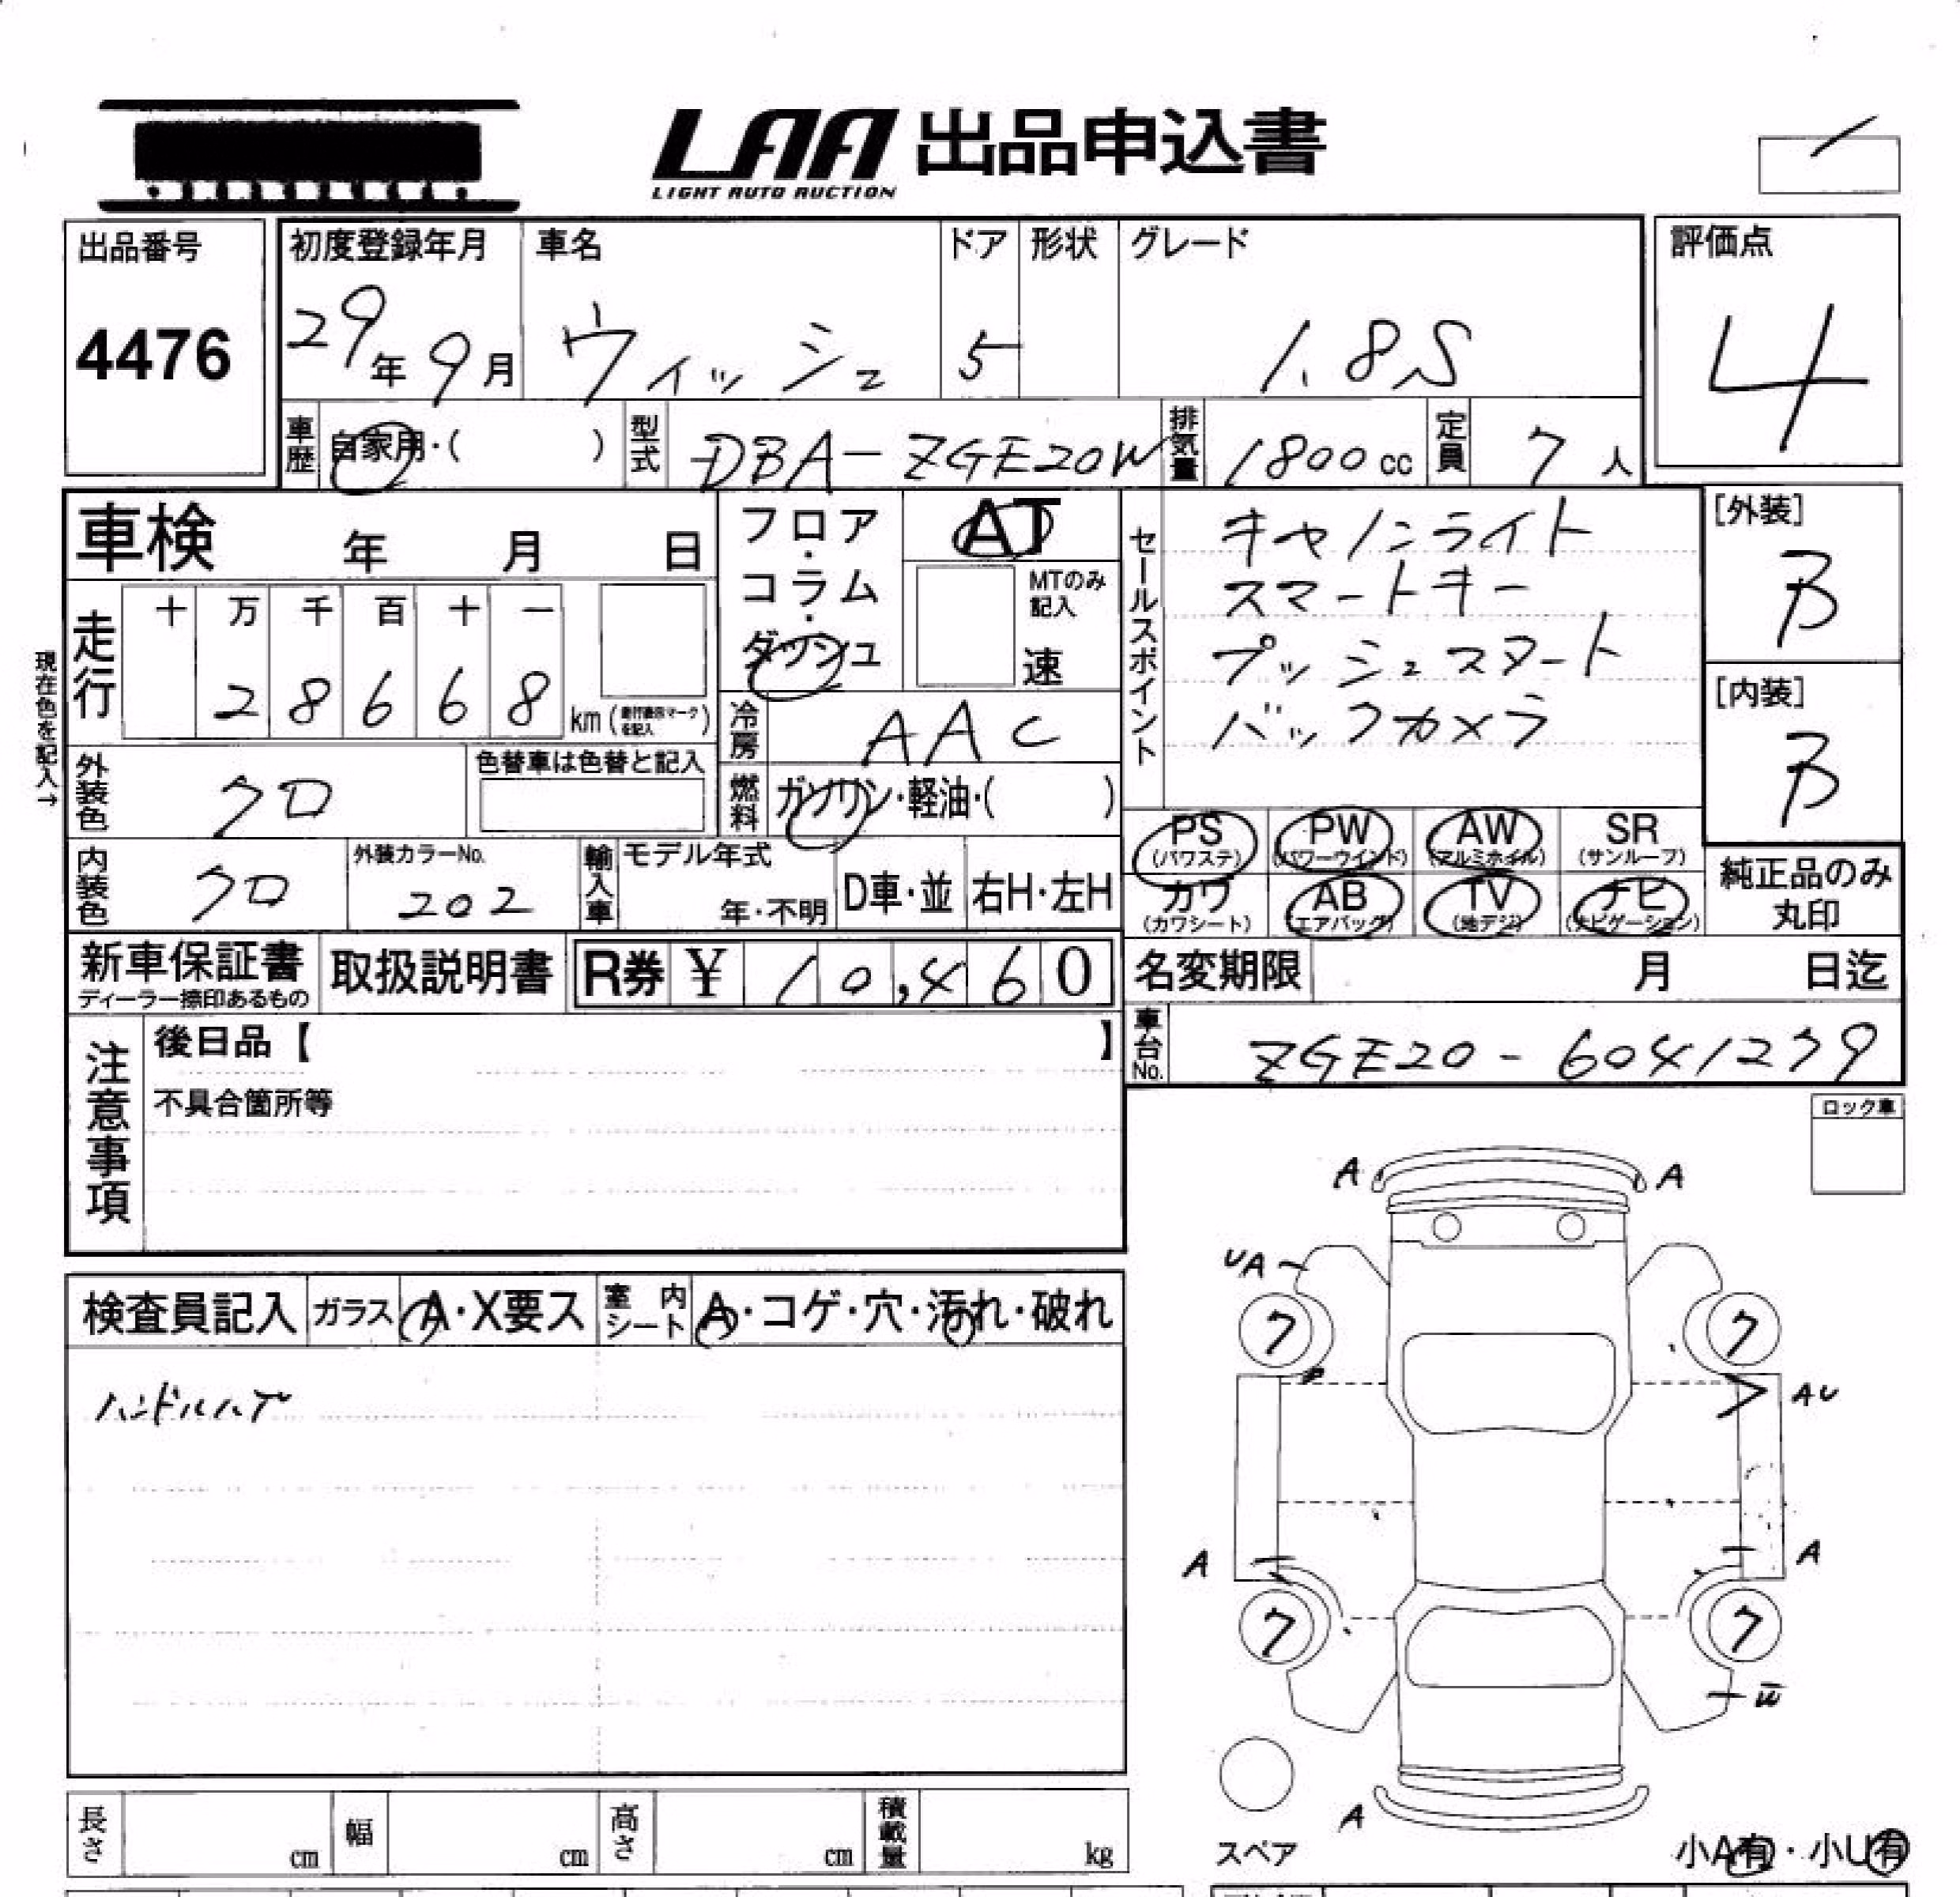 LAA 出品申込書
LIGHT AUTO AUCTION
出品番号
4476
初度登録年月
29年9月
車名
ウィッシュ
ドア
5
形状
グレード
1.8S
評価点
4
車歴
自家用・( )
型式
DBA-ZGE20W
排気量
1800cc
定員
7人
車検 年 月 日
フロア・コラム・ダッシュ
AT
MTのみ記入
速
セールスポイント
キセノンライト
スマートキー
プッシュスタート
バックカメラ
[外装]
B
[内装]
B
現在色を記入→
走行
十 万 千 百 十 一
2 8 6 6 8 km
冷房
AAC
外装色
クロ
色替車は色替と記入
燃料
ガソリン・軽油・( )
内装色
クロ
外装カラーNo.
202
輸入車
モデル年式
年・不明
D車・並
右H・左H
PS (パワステ)
PW (パワーウインド)
AW (アルミホイル)
SR (サンルーフ)
カワ (カワシート)
AB (エアバッグ)
TV (地デジ)
ナビ (ナビゲーション)
純正品のみ丸印
新車保証書
ディーラー捺印あるもの
取扱説明書
R券 ¥ 10,460
名変期限 月 日迄
車台No.
ZGE20-6041239
注意事項
後日品【 】
不具合箇所等
ロック車
検査員記入
ガラス A・X要ス
室内シート A・コゲ・穴・汚れ・破れ
ハンドルハゲ
A
A
UA
7
7
AU
A
A
7
7
W
A
スペア
小A有・小U有
長さ cm
幅 cm
高さ cm
積載量 kg